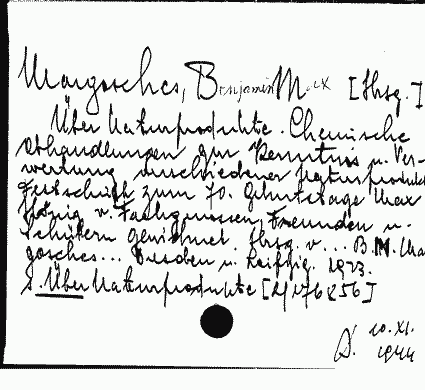 Margosches, Benjamin Max [Hrsg.]
Über Naturprodukte. Chemische
Abhandlungen zur Kenntnis u. Ver-
wertung verschiedener Naturprodukte
Festschrift zum 70. Geburtstage Max
Hönig v. Fachgenossen, Freunden u.
Schülern gewidmet. Hrsg. v... B. M. Mar
gosches... Dresden u. Leipzig. 1923.
s. Über Naturprodukte
10. XI.
1944